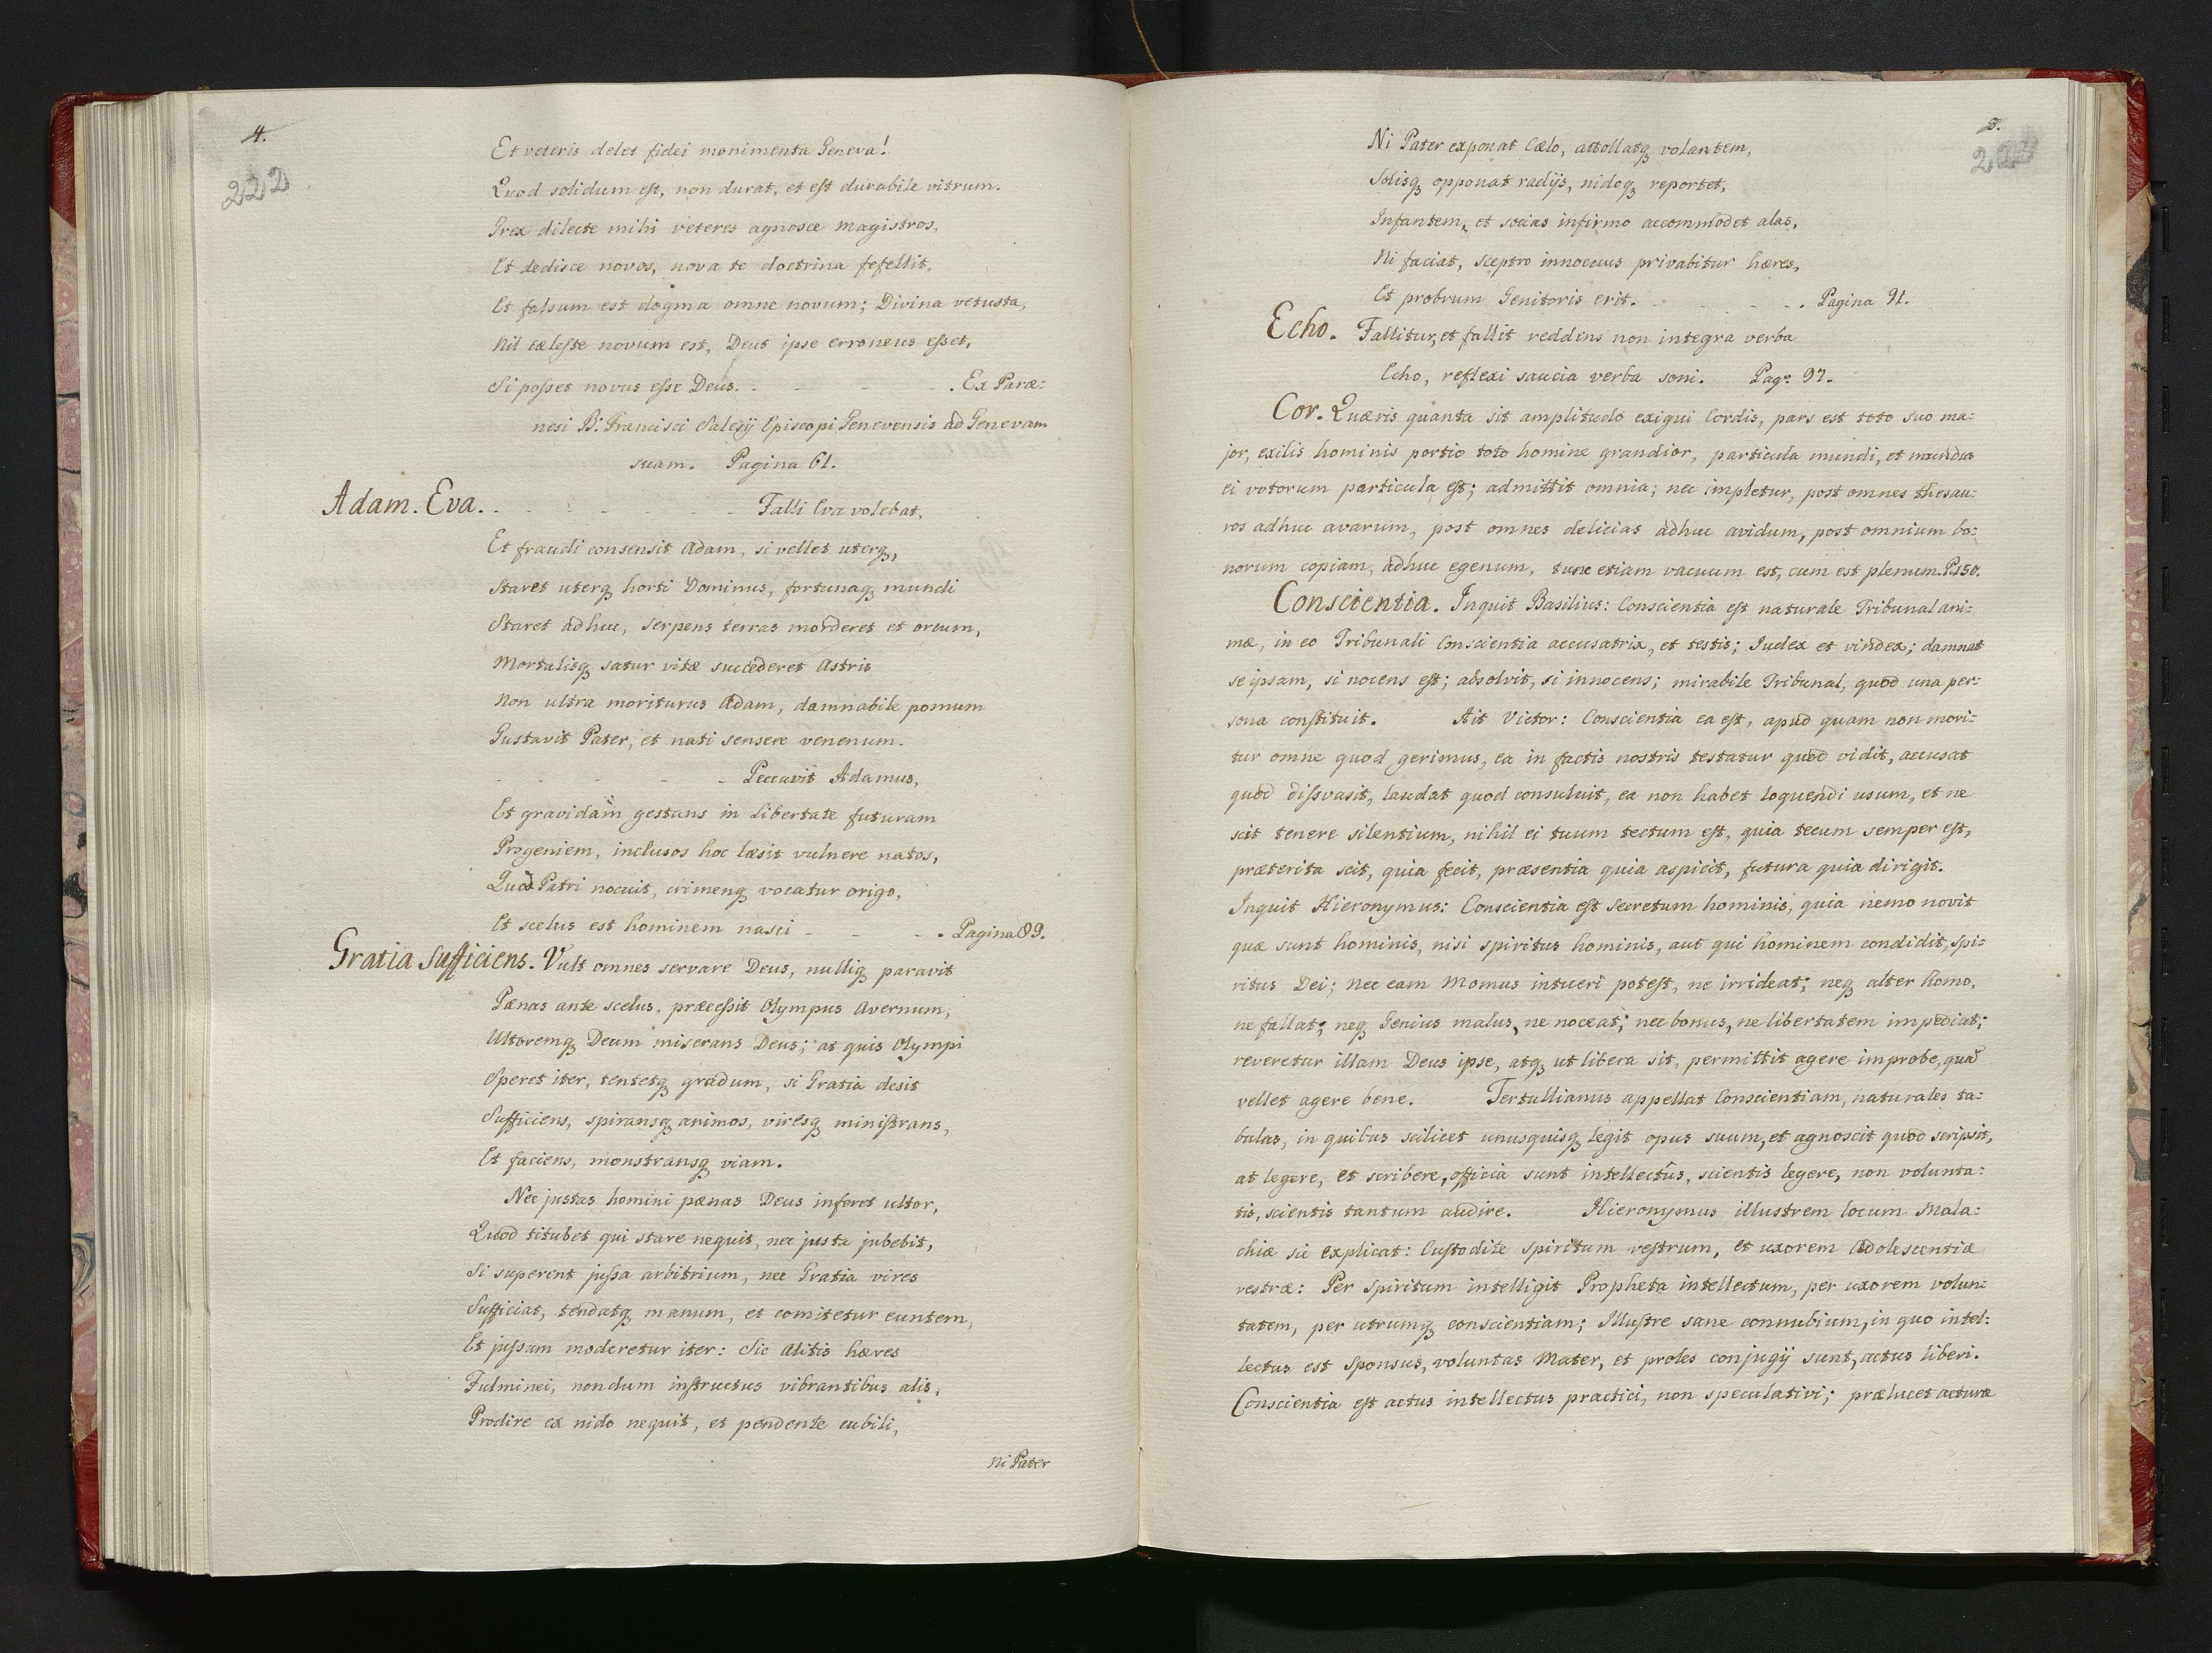 4.
222
Et veteris delet fidei monimenta Geneva!
Quod solidum est, non durat, et est durabile vitrum.
Grex dilecte mihi veteres agnosce magistros,
Et dedisce novos, nova te doctrina fefellit,
Et falsum est dogma omne novum; Divina vetusta,
Nil cæleste novum est, Deus ipse erroneus esset,
Si posset novus esse Deus. - - - - . Ex Paræ:
nesi B. Francisci Salesij Episcopi Genevensis ad Genevam
suam. Pagina 61.
Adam. Eva. - - - - - - Falli Eva volebat,
Et fraudi consensit Adam, si vellet uterq,
Staret uterq horti Dominus, fortunaq mundi
Staret adhuc, serpens terras morderet et orcum,
Mortalisq satur vitæ succederet Astris
Non ultra moriturus Adam, damnabile pomum
Gustavit Pater, et nati sensere venenum.
- - - - - - Peccavit Adamus,
Et gravidam gestans in libertate futuram
Progeniem, inclusos hoc læsit vulnere natos,
Quod Patri nocuit, crimenq vocatur origo,
Et scelus est hominem nasci - - - . Pagina 89.
Gratia Sufficiens. Vult omnes servare Deus, nulliq paravit
Pænas ante scelus, præcessit Olympus Avernum,
Ultoremq Deum miserans Deus; at quis Olympi
Speret iter, tentetq gradum, si Gratia desit
Sufficiens, spiransq animos, viresq ministrans,
Et faciens, monstransq viam.
Nec justas homini pænas Deus inferet ultor,
Quod titubet qui stare nequit, nec justa jubebit,
Si superent jussa arbitrium, nec Gratia vires
Sufficiat, tendatq manum, et comitetur euntem,
Et jussum moderetur iter: Sic Alitis hæres
Fulminei, nondum instructus vibrantibus alis,
Prodire ex nido nequit, et pendente cubili,
Ni Pater
5.
Ni Pater exponat Cælo, attollatq volantem,
Solisq opponat radijs, nidoq reportet,
Infantem, et socias infirmo accommodet alas,
Ni faciat, sceptro innocuus privabitur hæres,
Et probrum Genitoris erit. - - - - . Pagina 91.
Echo. Fallitur, et fallit reddens non integra verba
Echo, reflexi saucia verba soni. Pag. 97.
Cor. Quæris quanta sit amplitudo exigui Cordis, pars est toto suo ma:
jor, exilis hominis portio toto homine grandior, particula mundi, et mundus
ei votorum particula est; admittit omnia; nec impletur, post omnes thesau:
ros adhuc avarum, post omnes delicias adhuc avidum, post omnium bo:
norum copiam, adhuc egenum, tunc etiam vacuum est, cum est plenum. P. 150.
Conscientia. Inquit Basilius: Conscientia est naturale Tribunal ani:
mæ, in eo Tribunali Conscientia accusatrix, et testis; Judex et vindex; damnat
se ipsam, si nocens est; absolvit, si innocens; mirabile Tribunal, quod una per:
sona constituit. Ait Victor: Conscientia ea est, apud quam non mori:
tur omne quod gerimus, ea in factis nostris testatur quod vidit, accusat
quod dissvasit, laudat quod consuluit, ea non habet loquendi usum, et ne
scit tenere silentium, nihil ei tuum tectum est, quia tecum semper est,
præterita scit, quia fecit, præsentia quia aspicit, futura quia dirigit.
Inquit Hieronymus: Conscientia est secretum hominis, quia nemo novit
quæ sunt hominis, nisi spiritus hominis, aut qui hominem condidit, spi:
ritus Dei; nec eam Momus intueri potest, ne irrideat; neq alter homo,
ne fallat; neq Genius malus, ne noceat; nec bonus, ne libertatem impediat;
reveretur illam Deus ipse, atq ut libera sit, permittit agere improbe, quã
vellet agere bene. Tertullianus appellat Conscientiam, naturales ta:
bulas, in quibus scilicet unusquisq legit opus suum, et agnoscit quod scripsit,
at legere, et scribere, officia sunt intellectûs, scientis legere, non volunta:
tis, scientis tantum audire. Hieronymus illustrem locum Mala:
chiæ sic explicat: Custodite spiritum vestrum, et uxorem Adolescentiæ
vestræ: Per spiritum intelligit Propheta intellectum, per uxorem volun:
tatem, per utrumq conscientiam; Illustre sane connubium, in quo intel:
lectus est sponsus, voluntas Mater, et proles conjugij sunt, actus liberi.
Conscientia est actus intellectus practici, non speculativi; prælucet acturæ